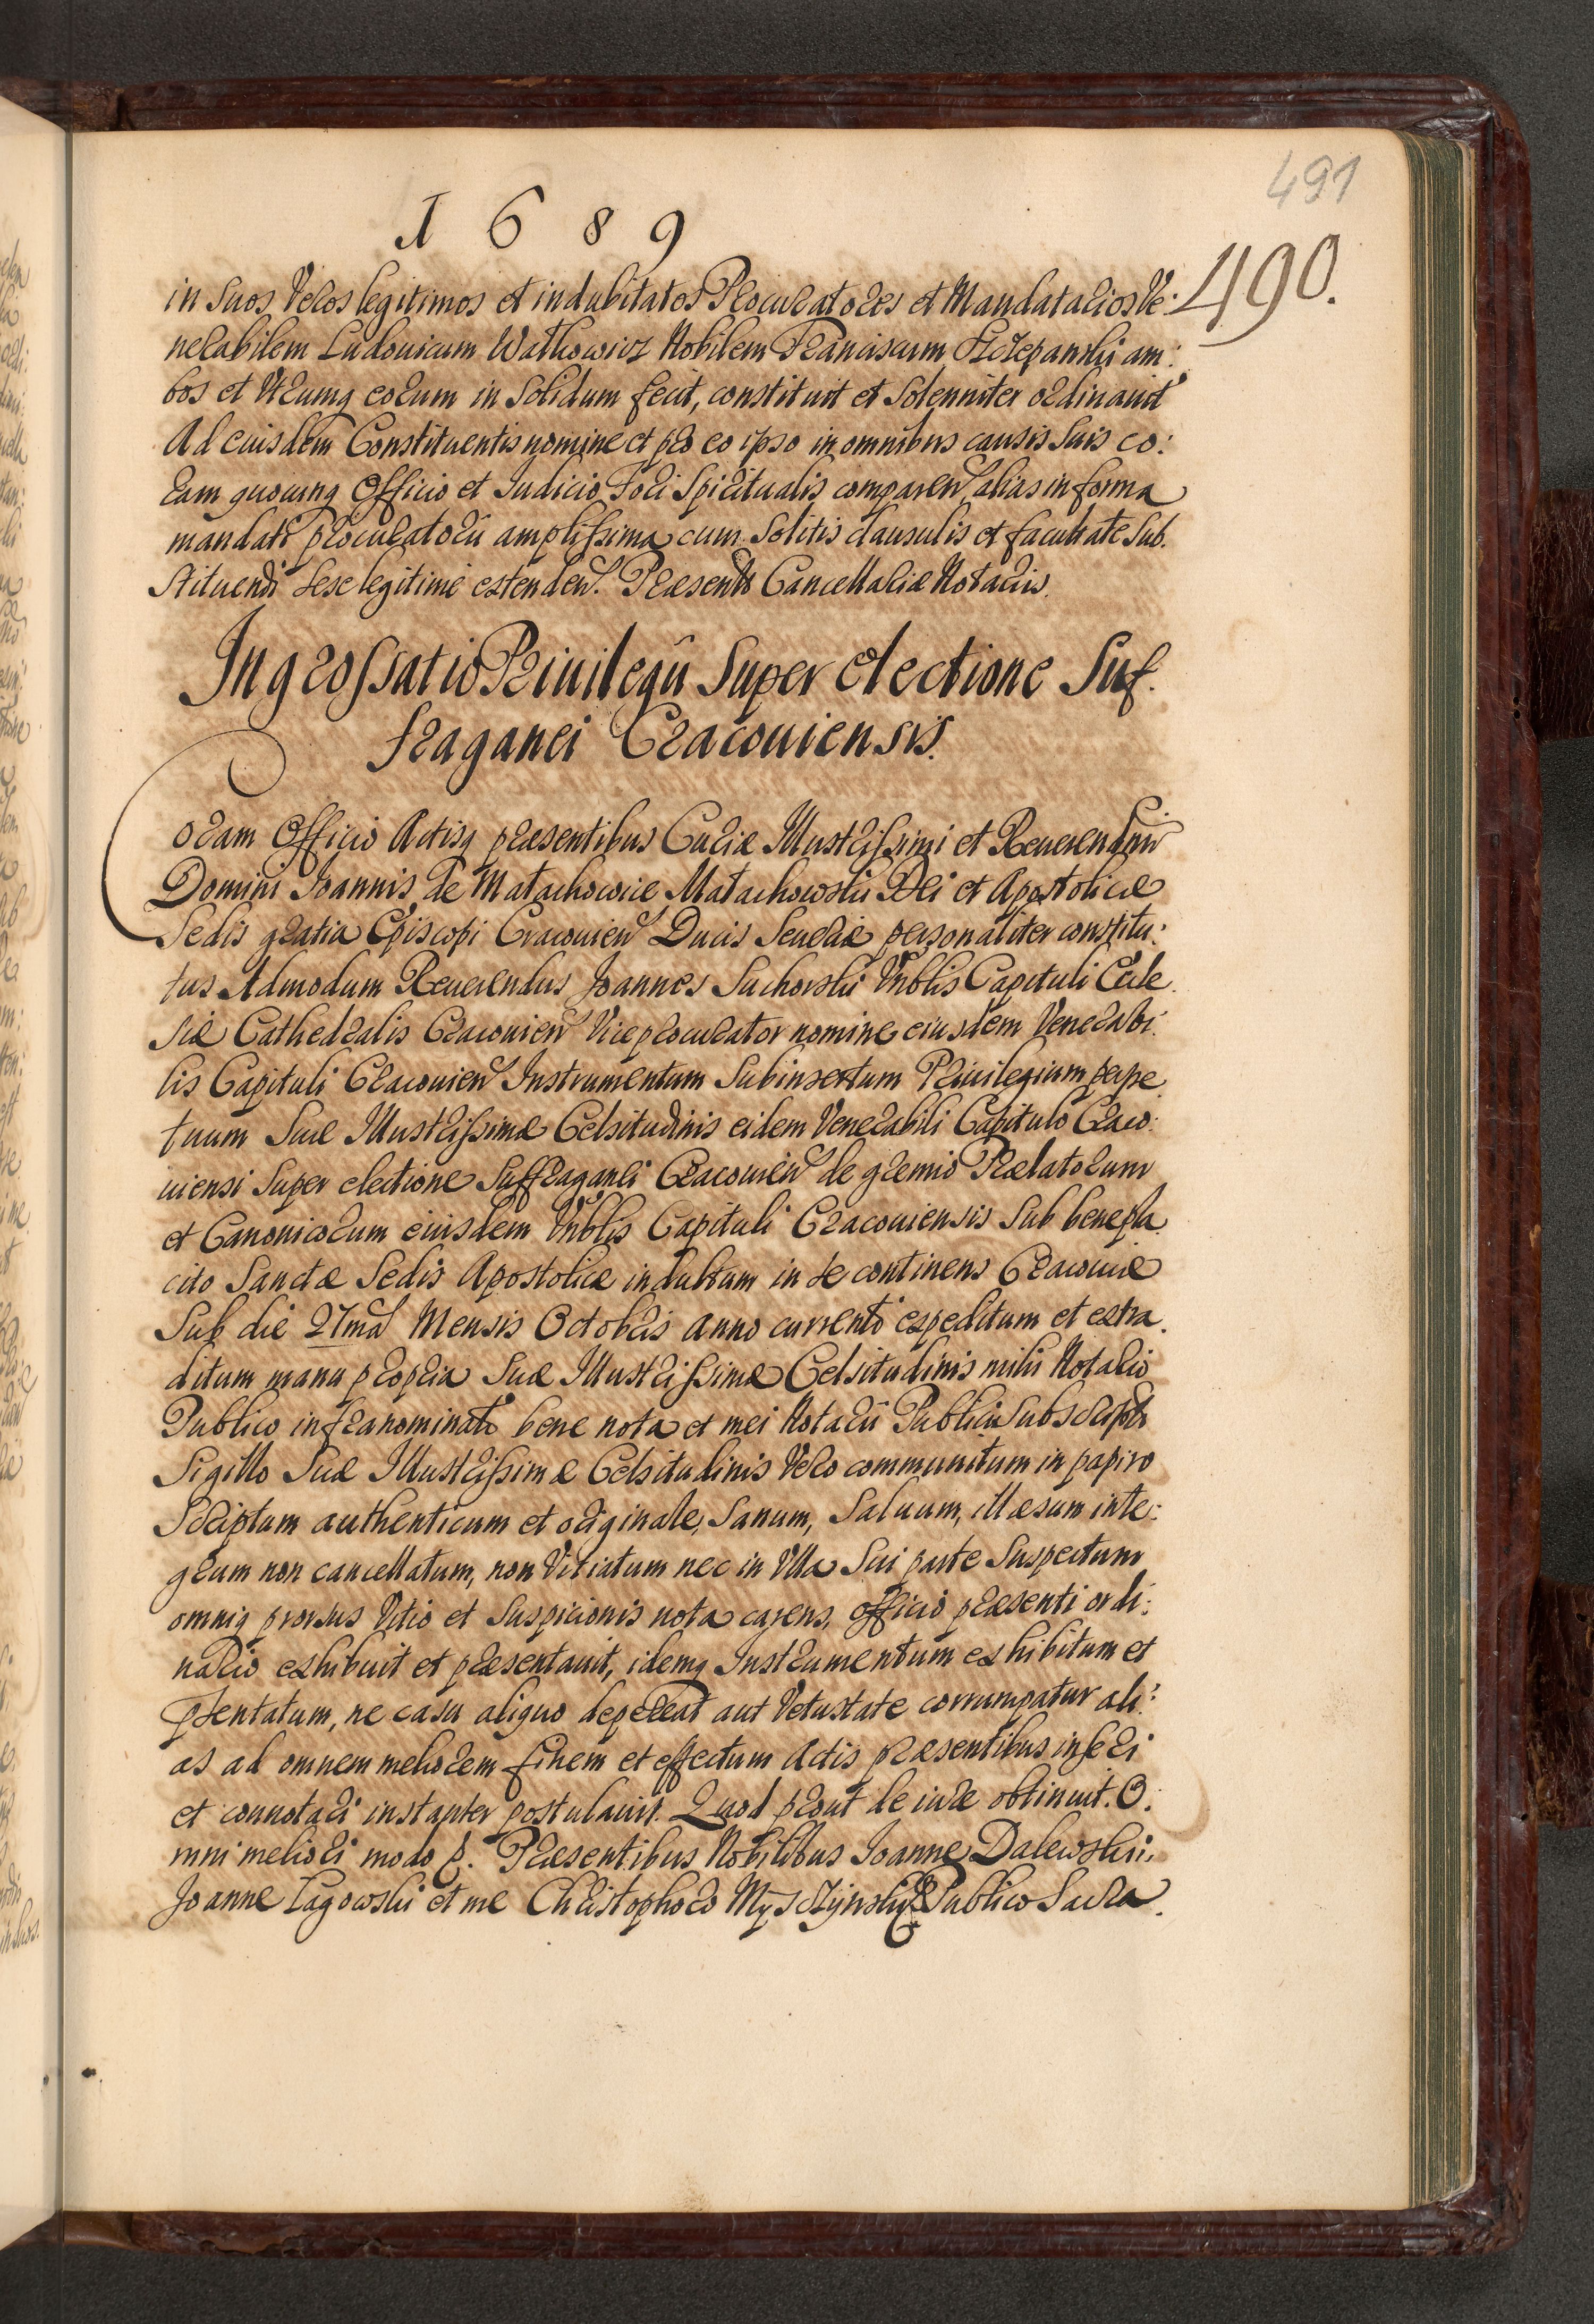 491
1689
490.
in suos Veros legitimos et indubitatos Procuratores et Mandatarios Ve:
nerabilem Ludouicum Wathowicz Nobilem Franciscum Szczepanski am:
bos et Utrumq eorum in solidum fecit, constituit et solenniter ordinauit
Ad euisdem Constituentis nomine et pro eo ipso in omnibus causis suis co:
ram quocunq Officio et Iudicio Fori Spiritualis comparen alias in forma
mandati procuratorii amplissima cum solitis clausulis et facultate sub.
stituendi sese legitime extenden. Praesentt Cancellariae Notariis.
Ingrossatio Priuilegii Super electione Suf.
fraganei Cracouiensis.
Coram Officio Actisq praesentibus Curiae Illustrissimi et Reuerendmi
Domini Joannis de Małachowice Małachowski Dei et Apostolicae
Sedis gratia Episcopi Cracouien Ducis Seueriae personaliter constitu:
tus Admodum Reuerendus Joannes Suchorski Vnblis Capituli Eccle
siae Cathedralis Cracouien Viceprocurator nomine eiusdem Venerabi.
lis Capituli Cracouien Instrumentum Subinsertum Priuilegium perpe
tuum Suae Illustrissimae Celsitudinis eidem Venerabili Capitulo Craco:
uiensi super electione Suffraganei Cracouien de gremio Praelatorum
et Canonicorum eiusdem Vnblis Capituli Cracouiensis Sub benepla.
cito Sanctae Sedis Apostolicae indultum in se continens Cracouiae
Sub die 27ma Mensis Octobris anno currenti expeditum et extra.
ditum manu propria Suae Illustrissimae Celsitudinis mihi Notario
Publico infranominato bene nota et mei Notarii Publici subscriptt
Sigillo Suae Illustrissimae Celsitudinis Vero communitum in papiro
Scriptum authenticum et originale, Sanum, Saluum, illaesum inte:
grum non cancellatum, non Vitiatum nec in Vlla Sui parte Suspectum
omniq prorsus Vitio et Suspicionis nota carens, officio praesenti ordi:
nario exhibuit et praesentauit, idemq Instrumentum exhibitum et
psentatum, ne casu aliquo depereat aut Vetustate corrumpatur ali:
as ad omnem meliorem finem et effectum Actis praesentibus inseri
et connotari instanter postulauit. Quod prout de iure obtinuit. O:
mni meliori modo p. Praesentibus Nobilibus Joanne Dalewski,
Joanne Łagowski et me Christophoro Mysczynski Publico Sacra.